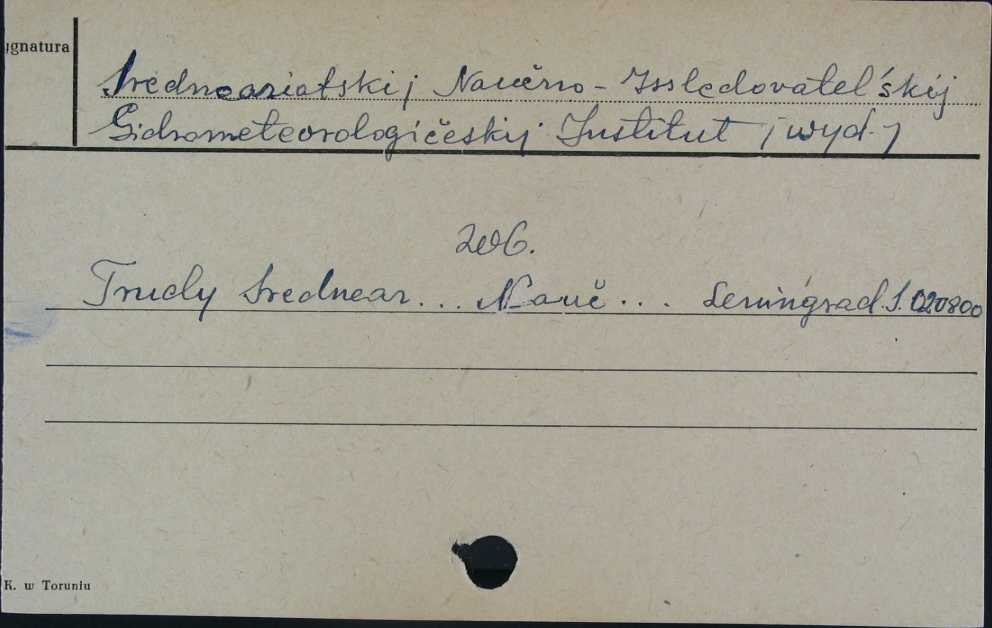 ygnatura
Sredneaziatskij Naučno-Issledovatel'skij
Gidrometeorologičeskij Institut /wyd./
zob.
Trudy Sredneaz... Nauč... Leningrad. S. 020800
K. w Toruniu